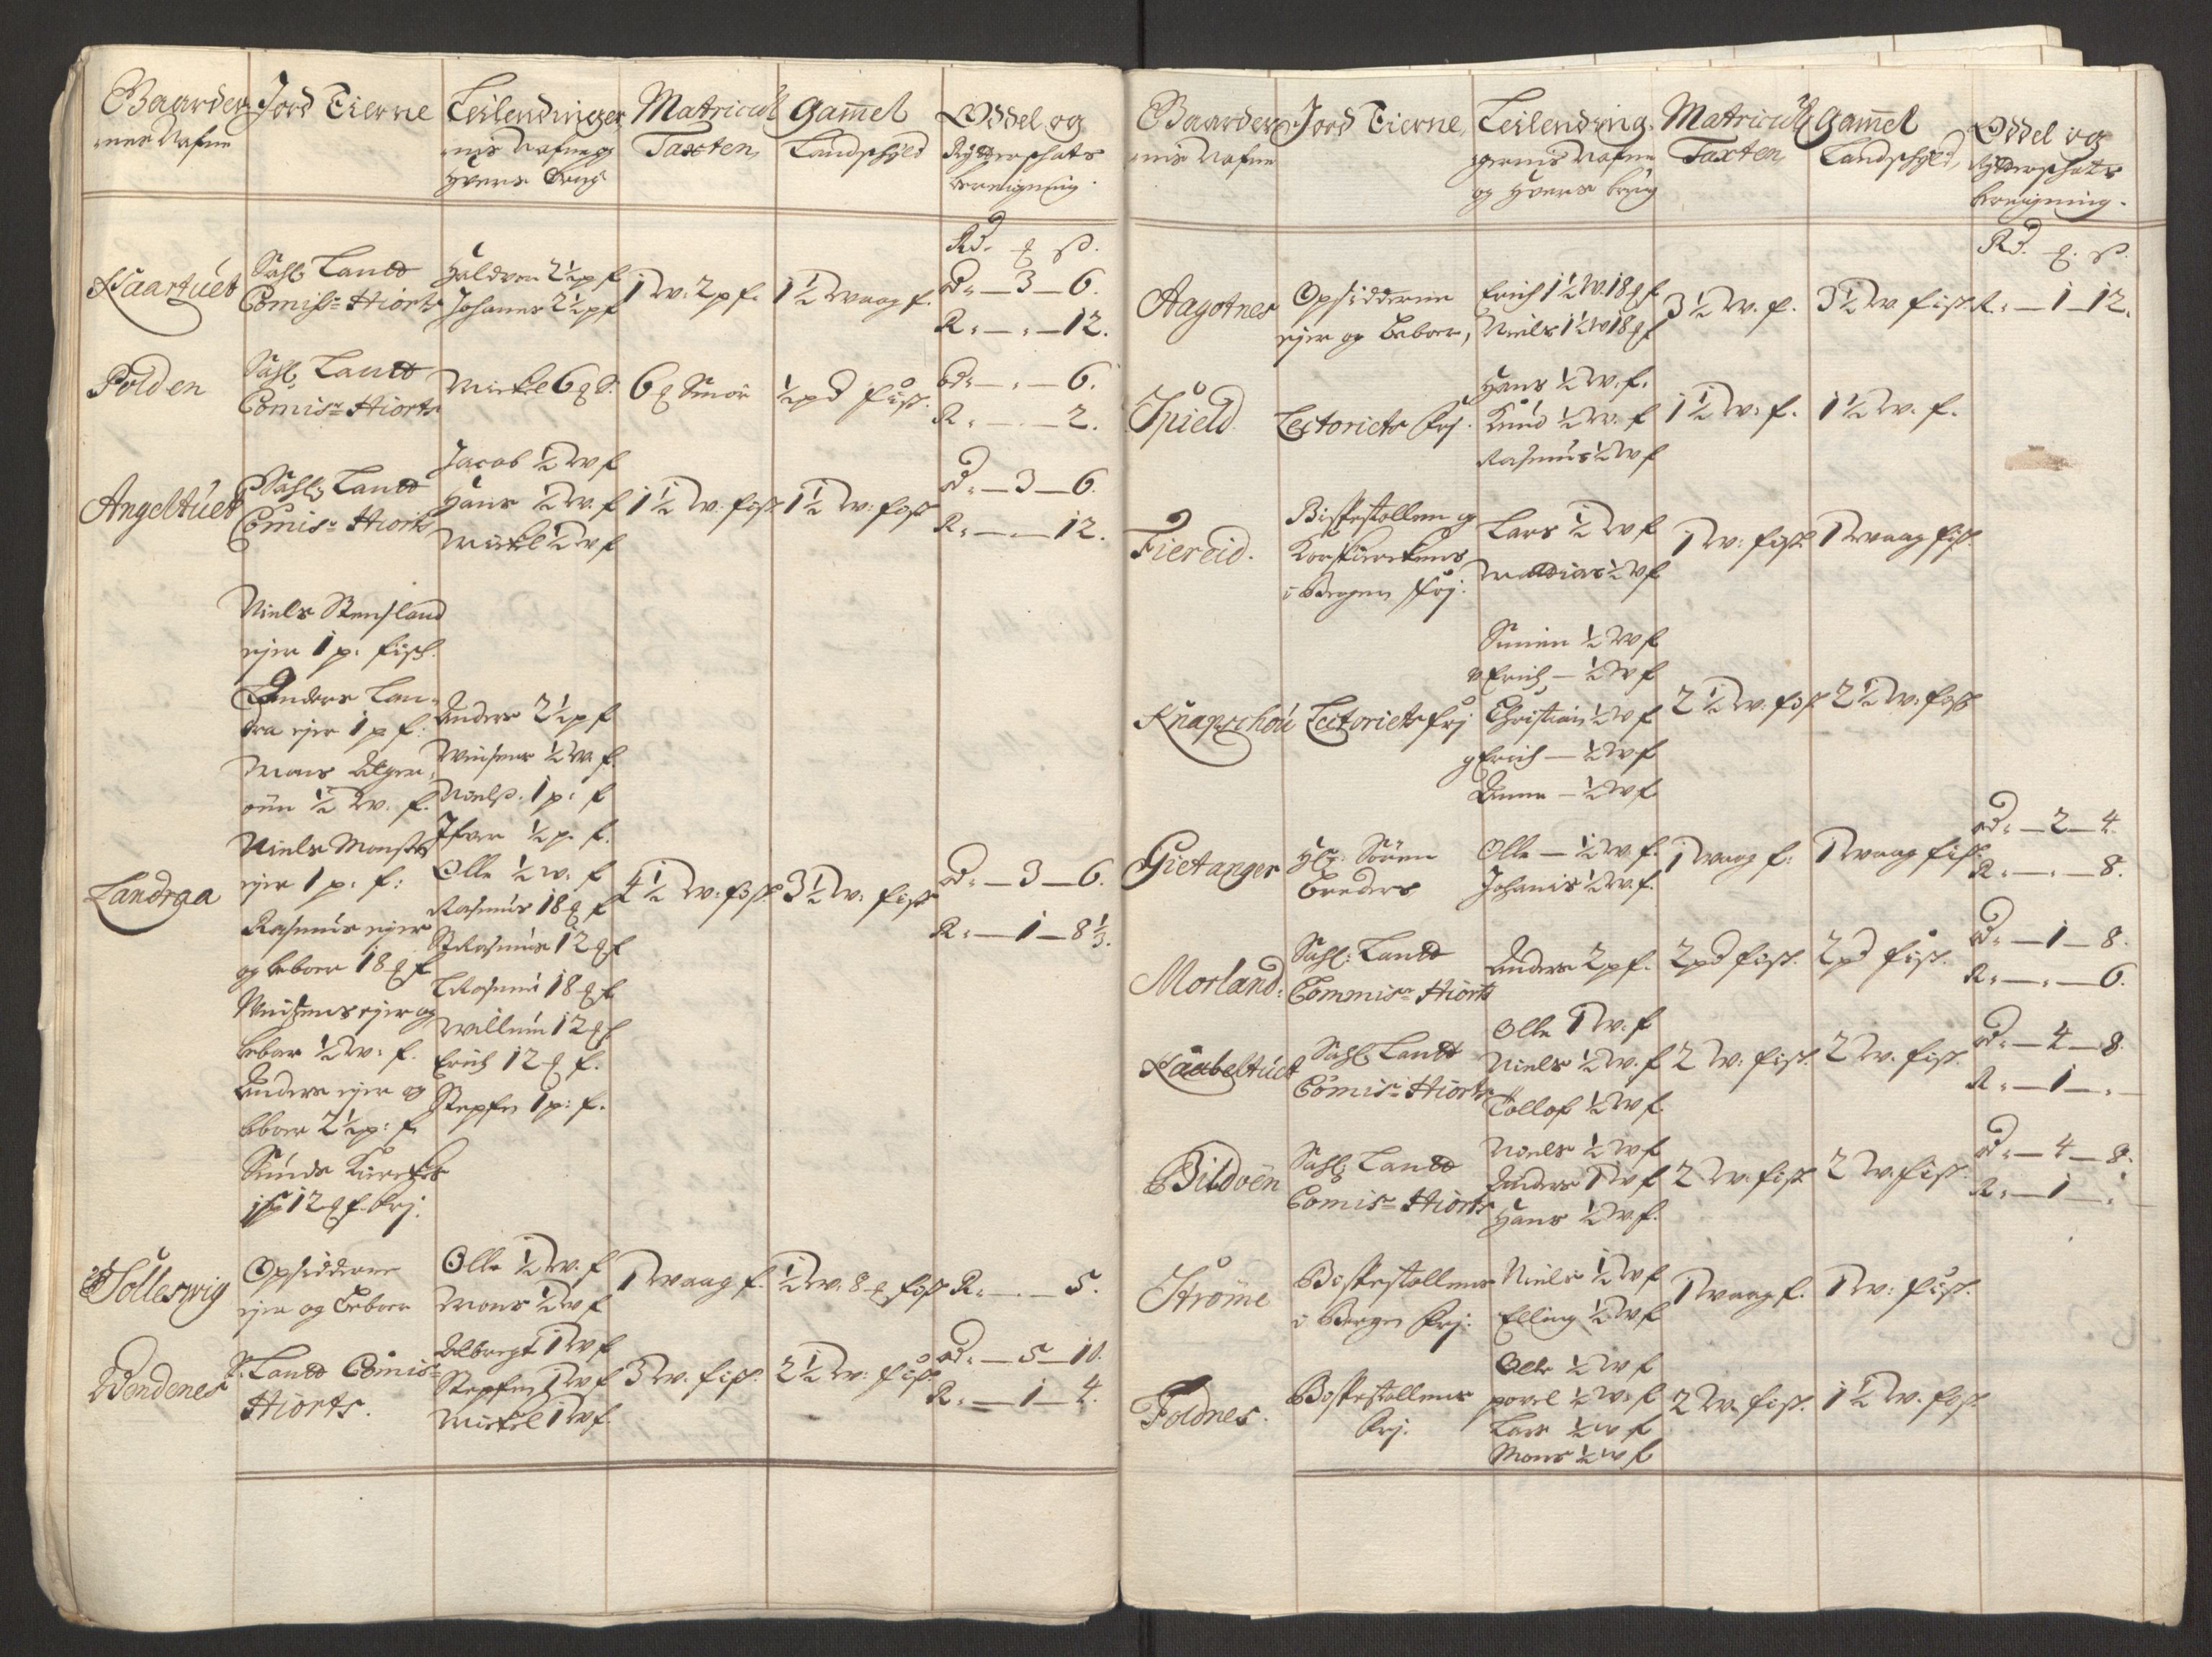 Gaarder
nes Nafne
Jord Eierne
Leilendinger
nis Nafne og
hvers brug
Matricul
Taxten,
Gam̄el
Landschyld
Oddel og
Rytterschats
beregning.
Rd. ₰ ß.
Kaartuet
Sahl: Landd
Comiss: Hiorts
Haldvor 2½ p f
Johanes 2½ p f
1 w: 2 p f.
1½ waag f.
Od: — 3 — 6.
R: — : — 12.
Polden
Sahl: Landd
Comisr: Hiorts
Mickel 6 ₰ S.
6 ₰ Smör
½ pd fisk.
Od: — . — 6.
R: — . — 2.
Angeltuet
Sahl: Landd
Comisr: Hiorts
Jacob ½ w f
Hans ½ w. f
Mickel ½ w f
1½ w: fisk
1½ w: fisk
Od: — 3 — 6.
R: — — 12.
Landraa
Niels Stensland
ejer 1 p: fisk.
Anders Lan-
dra ejer 1 p f:
Mons Alger-
öün ½ w. f.
Niels Monss:
ejer 1 p: f:
Rasmus ejer
og beboer 18 ₰ f
Monsens ejer og
bebor ½ w: f.
Anders ejer og
bboer 2½ p: f.
Sunds Kirckes
12 ₰ f. brj:
Anders 2½ p f
Monsens ½ w f.
Nielß. 1 p: f
Ifver ½ p. f.
Olle ½ w: f
Rasmus 18 ₰ f
St Rasmus 12 ₰ f
L Rasmus 18 ₰ f.
Willum 12 ₰ f
Erich 12 ₰ f.
Steffen 1 p: f.
4½ w: fisk
3½ w: fisk
Od: — 3 — 6.
R: — 1 — 8⅓.
Tolleswig
Opsidderne
ejer og beboer
Olle ½ w. f
Mons ½ w f
1 waag f.
½ w: 8 ₰ fisk
R: — . — 5.
Wendenes
S: Landd Comis:
Hiorts.
Albregt 1 w f
Steffen 1 w f
Mickel 1 w f.
3 w. fisk.
2½ w: fisk
Od: — 5 — 10.
R: — 1 — 4.
Gaarder
nis Nafne
Jord Eierne,
Leilending-
gernis Nafne
og hvers brug
Matricul
Taxten,
Gam̄el
Landschyld,
Oddel og
Rytterschats
beregning.
Rd. ₰. ß.
Aagotnes
Opsidderne
ejer og beboer,
Erich 1½ w. 18 ₰ f
Niels 1½ w 18 ₰ f
3½ w. f.
3½ w fisk
R: — 1 — 12.
Spield
Lectoriets brj.
Hans ½ w. f.
Knud ½ w. f
Rasmus ½ w f
1½ w: f.
1½ w. f.
Fiereid.
Bispestollen og
Korskirckens
i Bergen brj:
Lars ½ w f
Mattias ½ w f
1 w: fisk
1 waag fisk.
Knapschou
Lectoriets brj
Simen ½ w f
v Erich — ½ w f
Christian ½ w f
g Erich — ½ w f
Anna — ½ w f
2½ w. fisk
2½ w: fisk
Gietanger
Hr: Sören
Breders
Olle — ½ w. f.
Johanis ½ w. f.
1 waag f:
1 waag fisk
Od: — 2 — 4.
R: — . — 8.
Morland:
Sahl: Landd
Commisr: Hiorts
Anders 2 p f.
2 pd fisk.
2 pd fisk.
Od: — 1 — 8.
R: — . — 6.
Kaabeltuet
Sahl: Landd
Comisr: Hiorts
Olle 1 w. f
Niels ½ w. f
Tollof ½ w f.
2 w: fisk.
2 w. fisk.
Od: — 4 — 8.
R: — 1 — .
Bildöen
Sahl: Landd
Comisr: Hiorts
Niels ½ w f
Anders 1 w f
Hans ½ w f.
2 w: fisk
2 w: fisk.
Od: — 4 — 8.
R: — 1 — :
Ströme
Bispestollens
i Bergen brj:
Niels ½ w f
Elling ½ w f
1 waag f.
1 w: fisk.
Foldnes.
Bispestollens
brj.
Olle ½ w f
povel ½ w. f
Lars ½ w f
Mons ½ w f
2 w. fisk.
1½ w. fisk